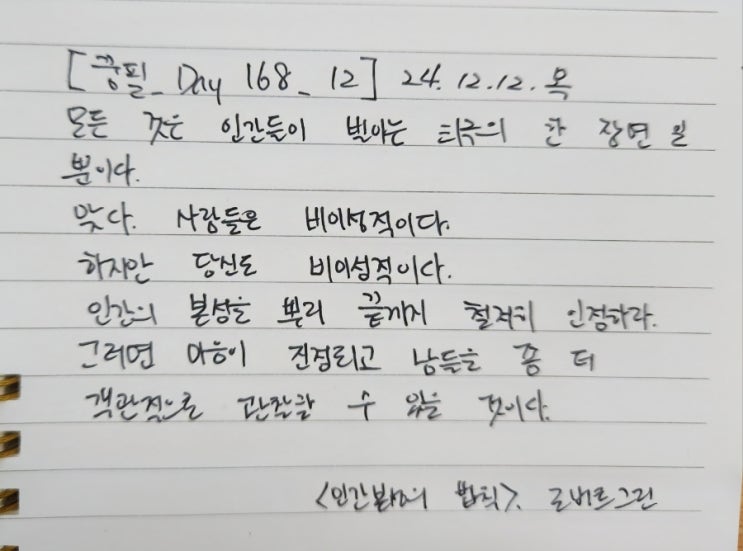 [꿍필_Day 168_12] 24. 12. 12. 목
모든 것은 인간들이 벌이는 희극의 한 장면일
뿐이다.
맞다. 사람들은 비이성적이다.
하지만 당신도 비이성적이다.
인간의 본성을 뿌리 끝까지 철저히 인정하라.
그러면 마음이 진정되고 남들을 좀 더
객관적으로 관찰할 수 있을 것이다.
<인간본성의 법칙>. 로버트그린